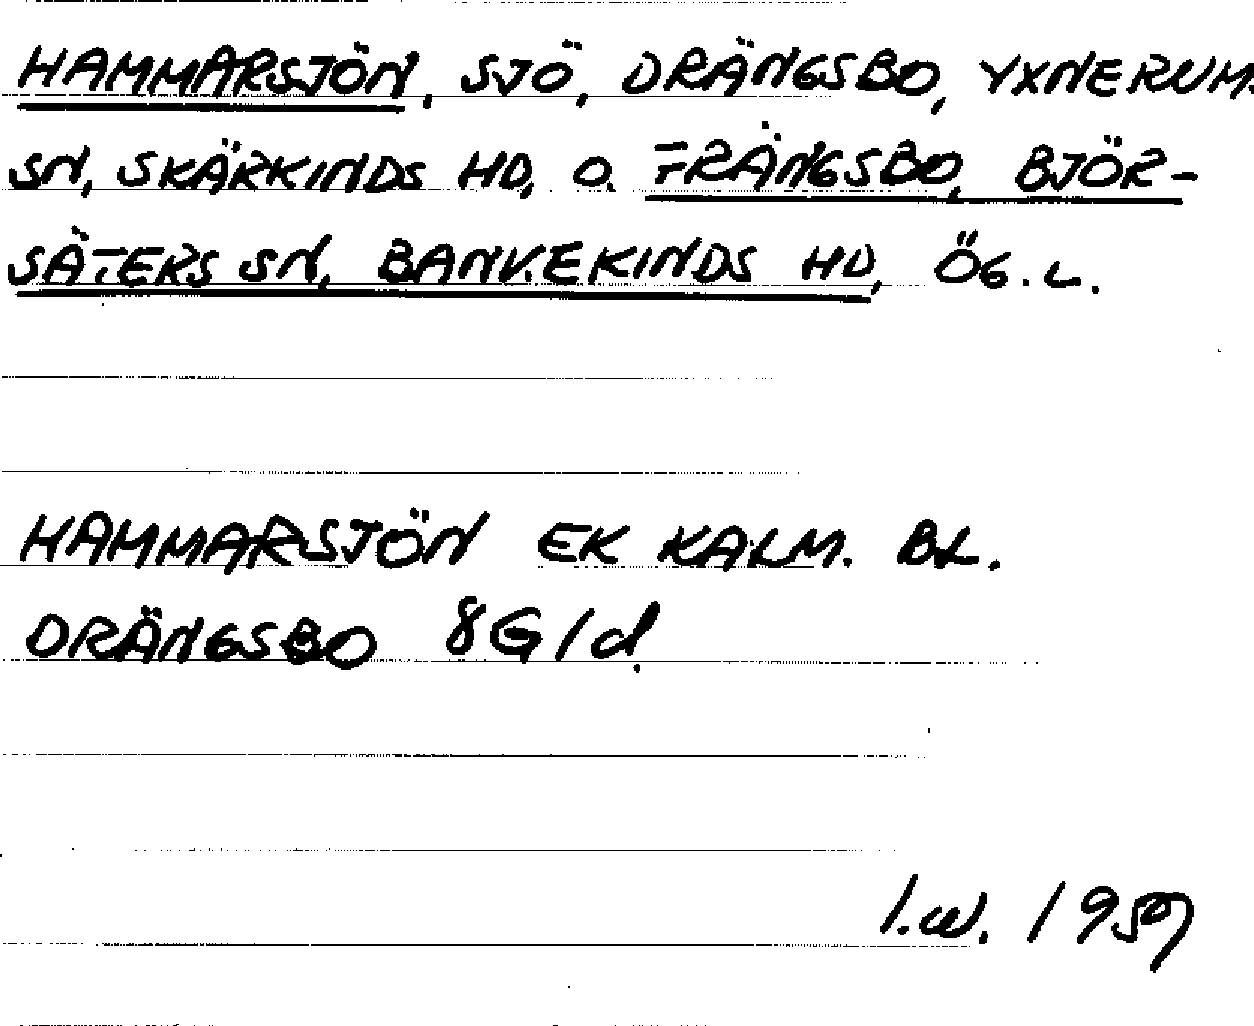 HAMMARSJÖN, SJÖ, DRÄNGSBO, YXNERUMS
SN, SKÄRKINDS HD, O. FRÄNGSBO, BJÖR-
SÄTERS SN, BANKEKINDS HD, ÖG. L.
HAMMARSJÖN EK KALM. BL.
DRÄNGSBO 8G/d.
I.W. 1959